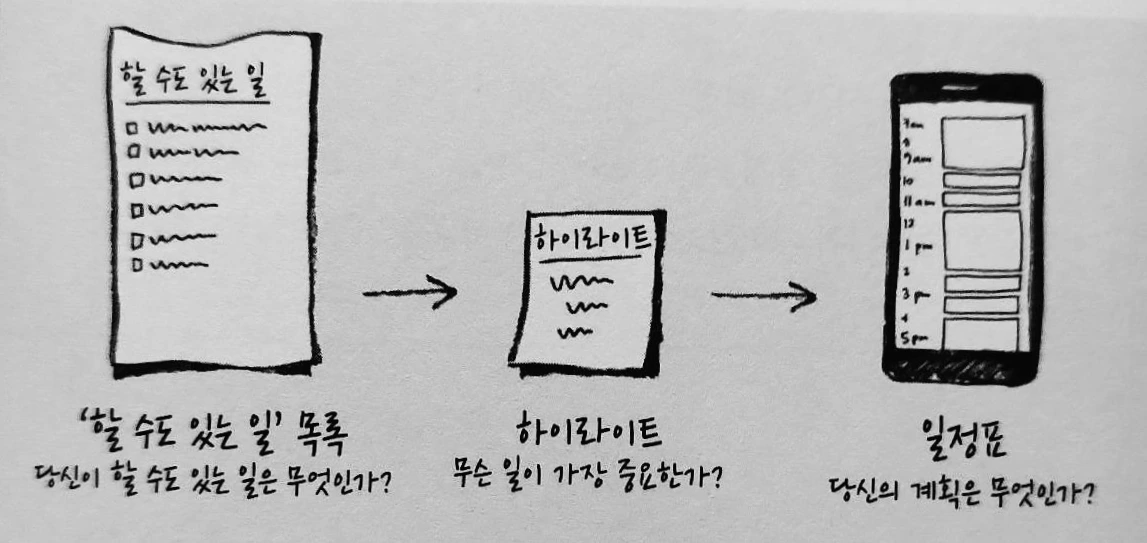 할 수도 있는 일
하이라이트
7am
8
9am
10
11am
12
1pm
2
3pm
4
5pm
'할 수도 있는 일' 목록
당신이 할 수도 있는 일은 무엇인가?
하이라이트
무슨 일이 가장 중요한가?
일정표
당신의 계획은 무엇인가?